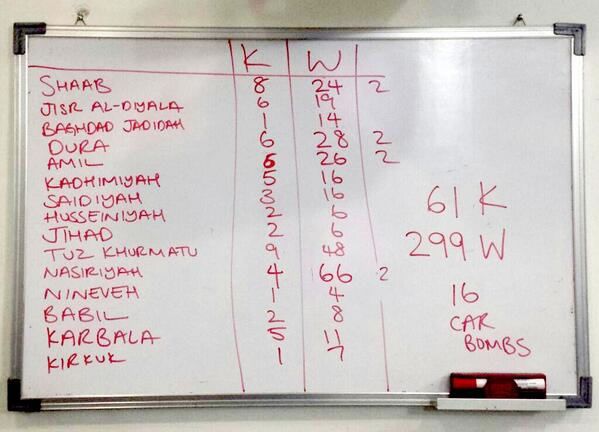 K W
SHAAB 8 24 2
JISR AL-DIYALA 6 19
BAGHDAD JADIDAH 1 14
DURA 6 28 2
AMIL 6 26 2
KADHIMIYAH 5 16
SAIDIYAH 3 16
HUSSEINIYAH 2 6
JIHAD 2 6
TUZ KHURMATU 9 48
NASIRIYAH 4 66 2
NINEVEH 1 4
BABIL 2 8
KARBALA 5 11
KIRKUK 1 7
61 K
299 W
16
CAR
BOMBS